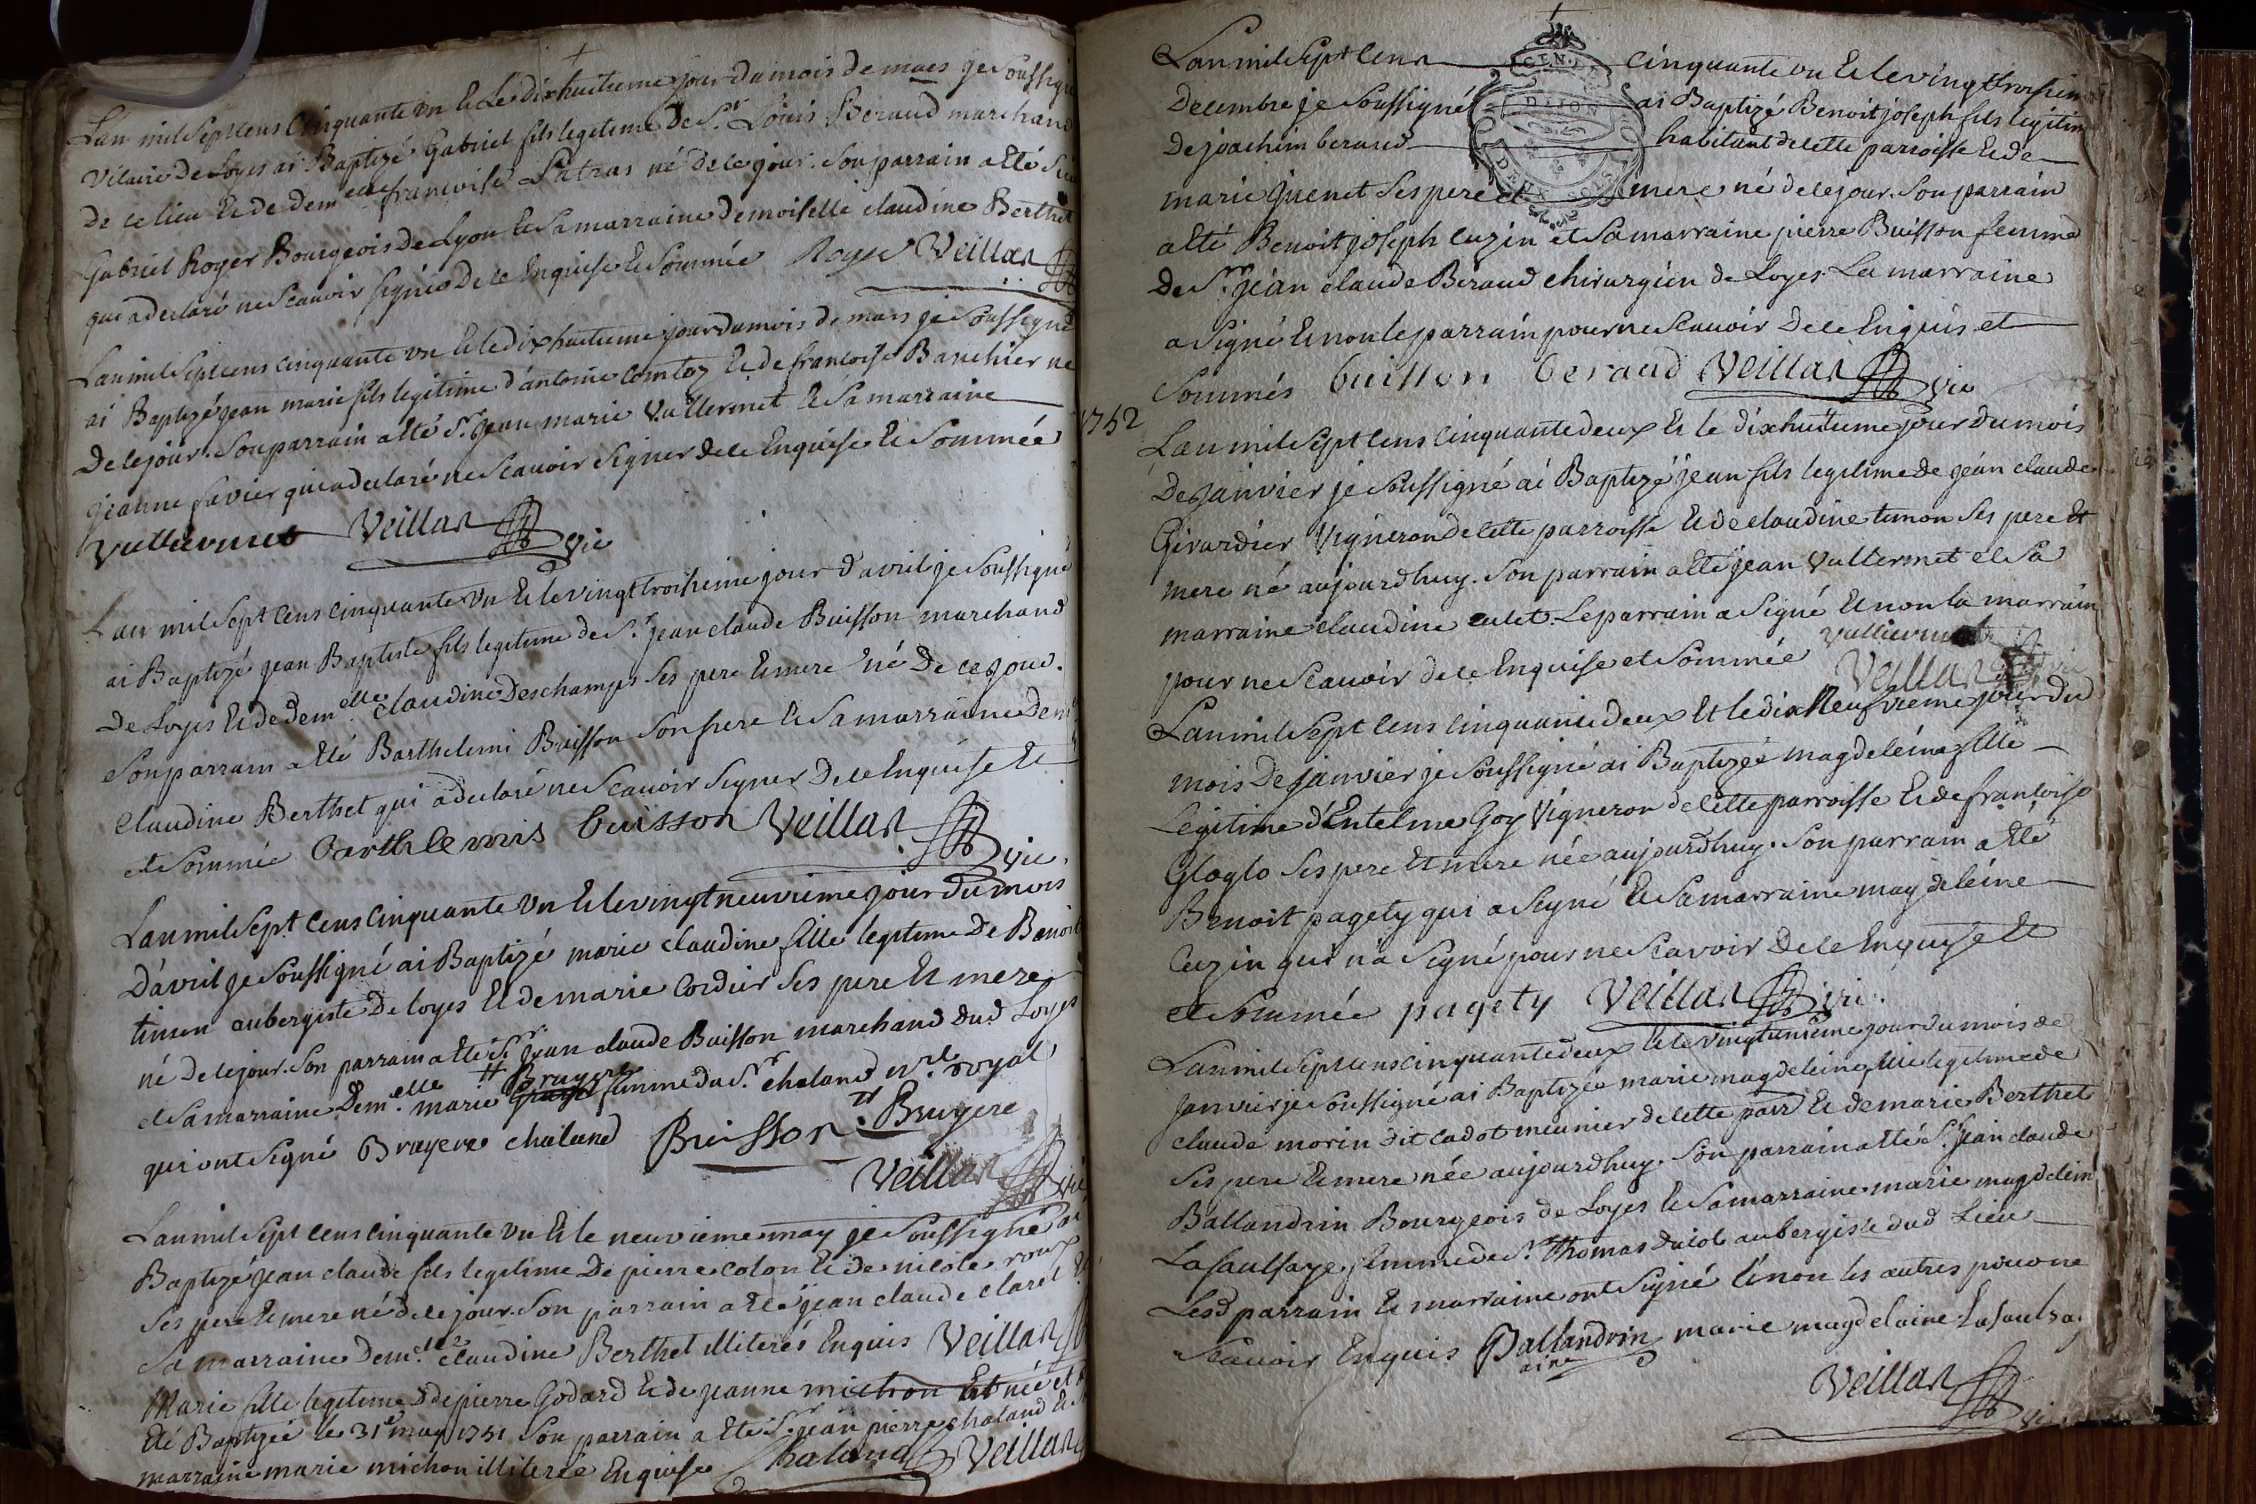 Lan mil Sept cens Cinquante vn Et Le dixhuitieme jour du mois de mars je Soussigné
Vicaire de Loyes ai Baptizé Gabriel fils legitime de Sr. Loüis Beraud marchand
de ce lieu Et de demelle francoise Patras né de ce jour. Son parrain a Eté
Gabriel Roger Bourgeois de Lyon Et Sa marraine demoiselle claudine Berthet
qui a declaré ne Scauoir signer De ce Enquise Et Sommée Roger Veillas
Lan mil Sept cens cinquante vn Et le dixhuitieme jour du mois de mars je Soussigné
ai Baptizé jean marie fils legitime d'antoine Comtoz Et de francoise Banchier né
de ce jour. Son parrain a Eté Sr. jean marie Vulliermet Et Sa marraine
jeanne favier qui a declaré ne Scauoir Signer de ce Enquise Et Sommée
Vulliermet Veillas vic
Lan mil Sept Cens cinquante vn Et le vingt troisieme jour d'avril je Soussigné
ai Baptizé jean Baptiste fils legitime de Sr. jean claude Buisson marchand
de Loyes Et de demelle. claudine Deschamps Ses pere Et mere né De ce jour.
Son parrain a Eté Barthelemi Buisson Son frere Et Sa marraine Demelle
Claudine Berthet qui a declaré ne Scauoir Signer De ce Enquise Et
et Sommée Barthlemis buisson Veillas vic.
Lan mil Sept Cens Cinquante vn Et le vingt neuvieme jour du mois
D'avril je Soussigné ai Baptizé marie claudine fille légitime De Benoit
timon aubergiste De loyes Et de marie Cordier Ses pere Et mere
né de ce jour. Son parrain a Eté Sr. jean claude Buisson marchand dud Loyes
et Sa marraine Demelle. marie Bruyere femme du Sr. chaland nre. royal
qui ont Signé Bruyere chaland Buisson Bruyere
Veillas vic
Lan mil Sept cens cinquante vn Et le neuvieme may je Soussigné ai
Baptizé jean claude fils legitime De pierre colon Et de nicole roux
Ses pere Et mere né de ce jour. Son parrain a Eté jean claude claret Et
Sa marraine Demelle. claudine Berthet illiterés Enquis Veillas
Marie fille legitime de pierre Godard Et de jeanne michon Est née et a
Eté Baptizée le 31e may 1751 Son parrain a Eté Sr. jean pierre chaland Et Sa
marraine marie michon illiterée Enquise Chaland Veillas
Lan mil Sept Cens cinquante vn Et le vingt troisieme
Decembre je Soussigné ai Baptizé Benoit joseph fils legitime
De joachim beraud habitant de cette parroisse Et de
marie Guenet Ses pere et mere né de ce jour. Son parrain
a Eté Benoit joseph cuzin et Sa marraine pierre Buisson femme
de Sr. jean claude Beraud chirurgien de Loyes. La marraine
a Signé Et non le parrain pour ne Scauoir De ce Enquis et
Sommés buisson beraud Veillas vic
1752
Lan mil Sept Cens cinquante deux Et le dixhuitieme jour du mois
De janvier je Soussigné ai Baptizé jean fils legitime de jean claude
Girardier Vigneron de cette parroisse Et de claudine timon Ses pere Et
mere né aujourdhuy. Son parrain a Eté jean Vulliermet et Sa
marraine claudine culet. Le parrain a Signé Et non la marraine
pour ne Scauoir de ce Enquise et Sommée Vulliermet
Veillas vic
Lan mil Sept Cens Cinquante deux Et le dix Neufvieme jour du
mois De janvier je Soussigné ai Baptizée magdeleine fille
Legitime d'Entelme Goy Vigneron de cette parroisse Et de francoise
Gloglo Ses pere Et mere née aujourdhuy. Son parrain a Eté
Benoit pagety qui a Signé Et Sa marraine magdeleine
Cuzin qui n'a Signé pour ne Scavoir De ce Enquise Et
et Sommée pagety Veillas vic.
Lan mil Sept cens cinquante deux Et le vingtunieme jour du mois de
Janvier je Soussigné ai Baptizée marie magdeleine fille legitime de
claude morin dit cadot meunier de cette parr. Et de marie Berthet
Ses pere Et mere née aujourdhuy. Son parrain a Eté Sr. jean claude
Ballandrin Bourgeois de Loyes Et Sa marraine marie magdeleine
Lasaulsaye femme de Sr. thomas aubergiste dud Lieu
Lesd parrain Et marraine ont Signé Et non les autres pour ne
Scauoir Enquis Ballandrin marie magdelaine Lasaulsa.
aine
Veillas
vic